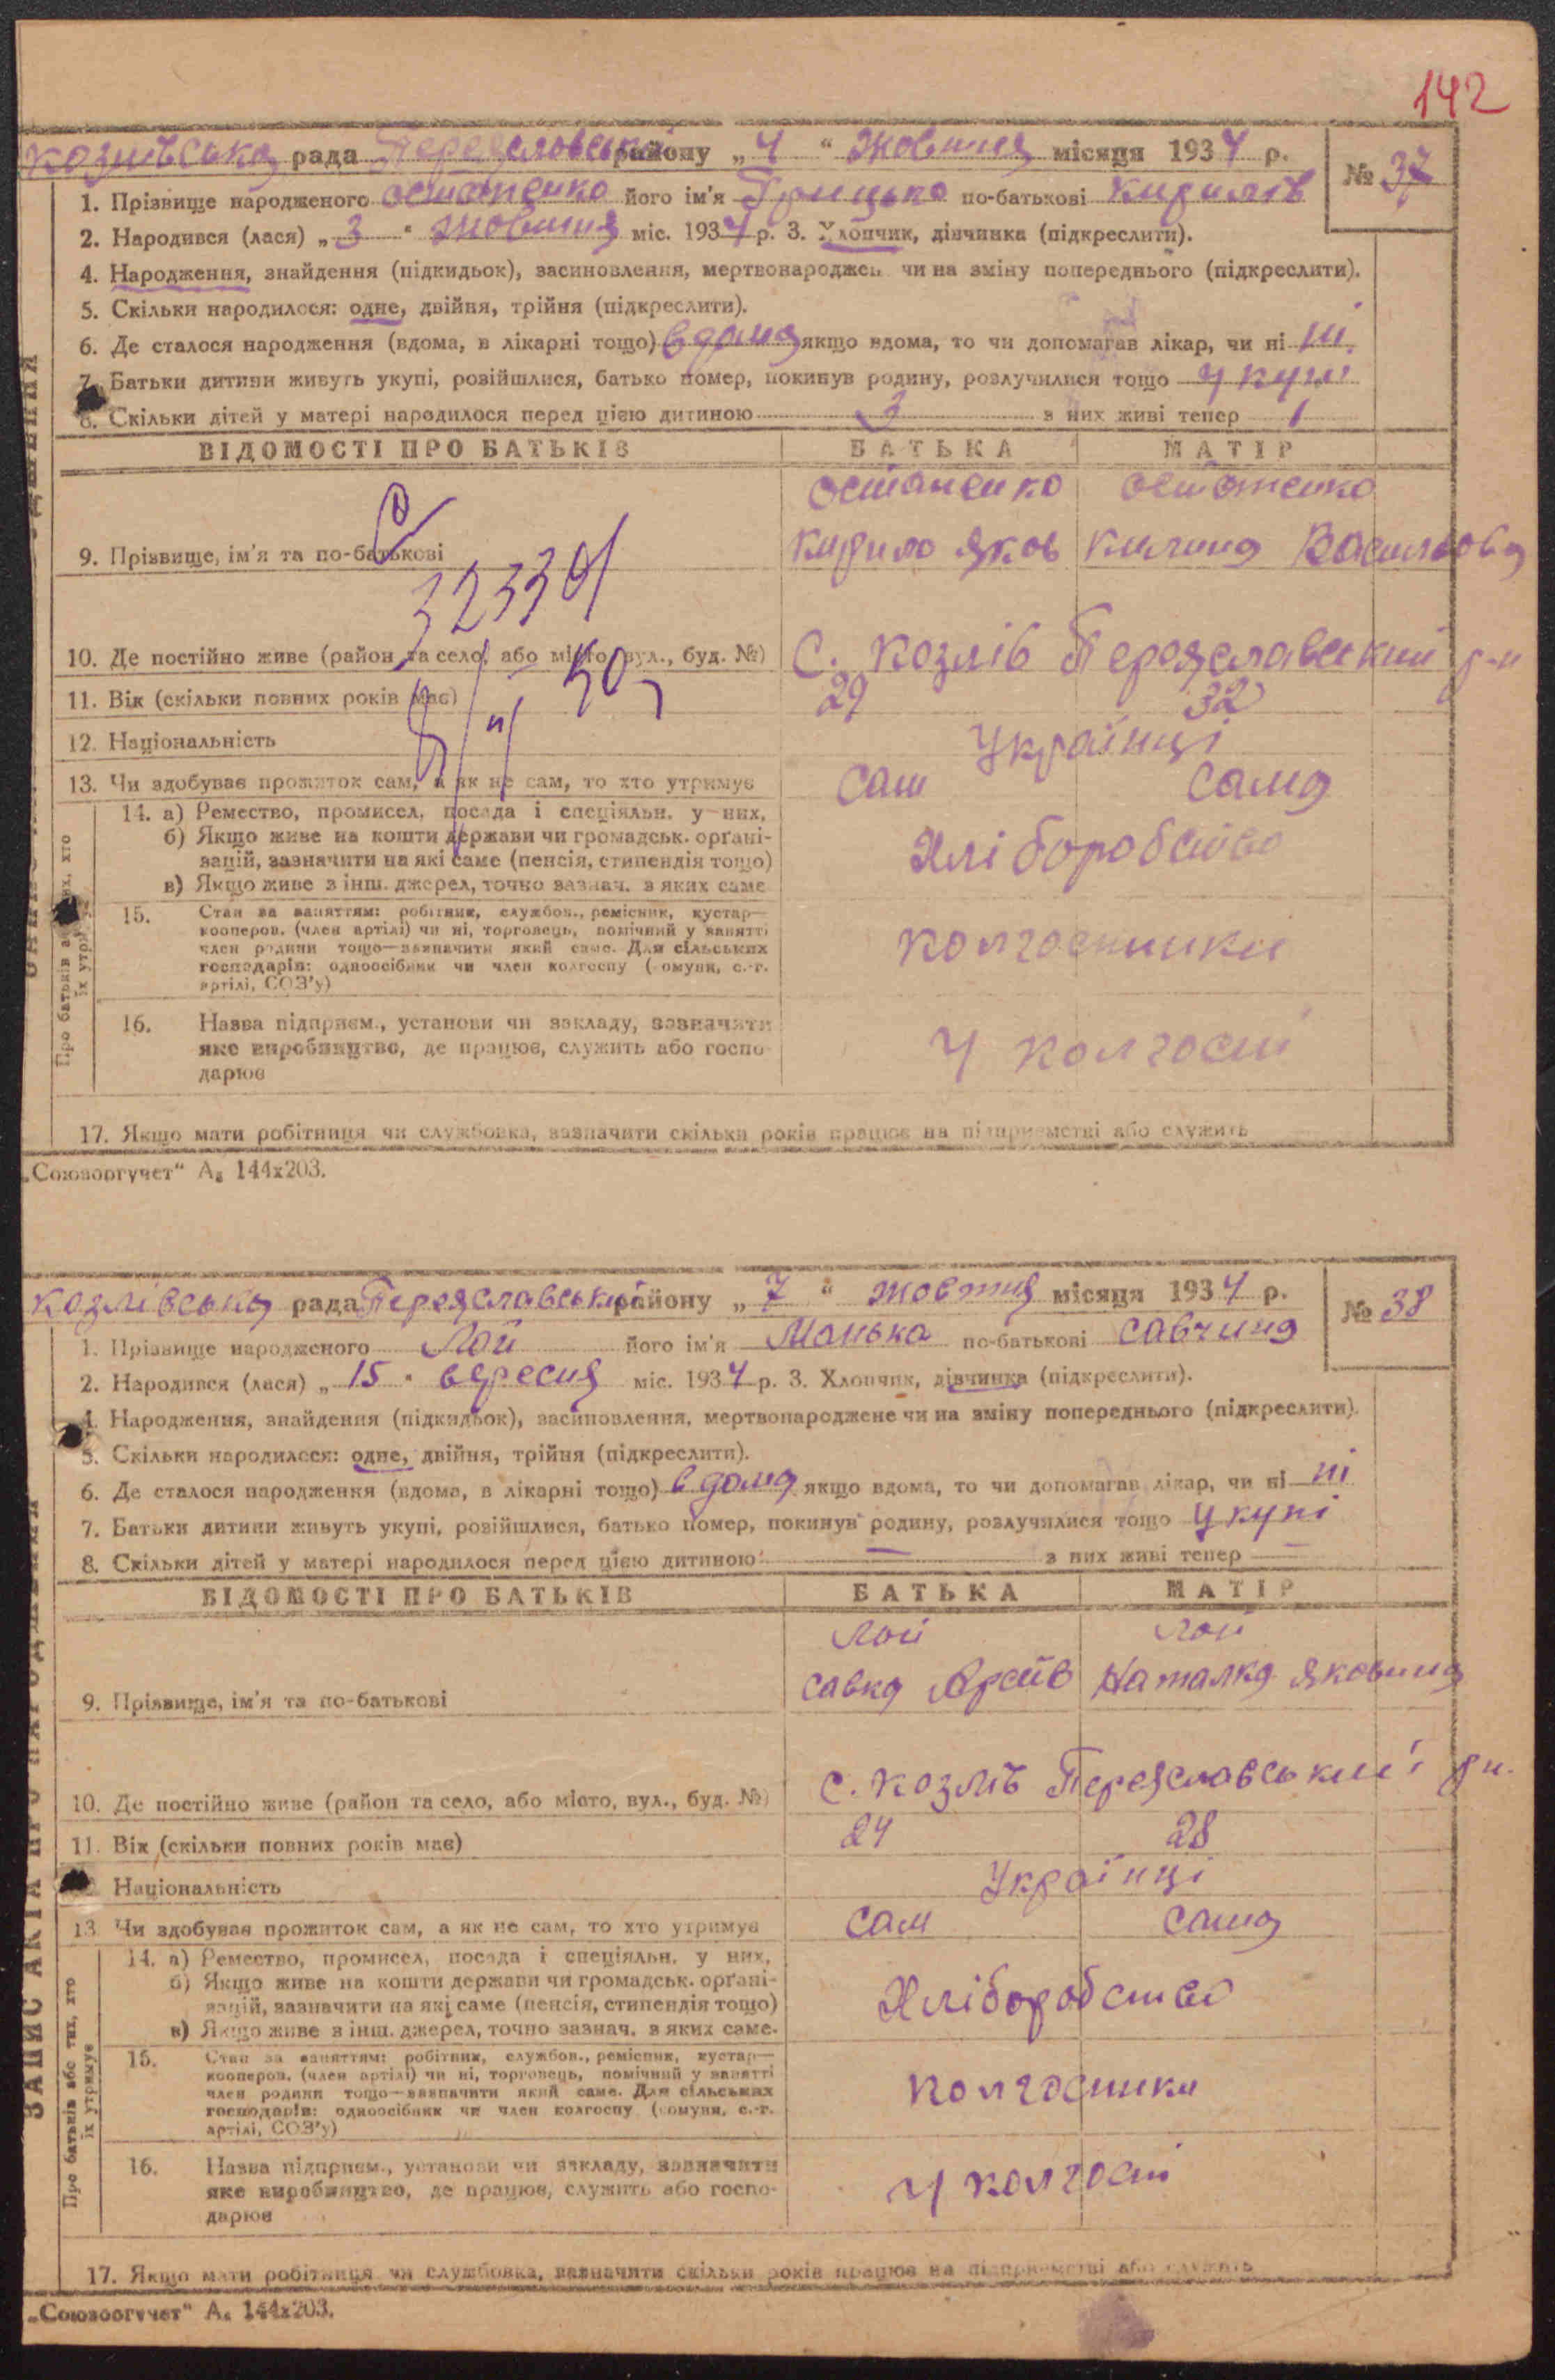 142
Козлівська рада Переяславськ району „4“ Жовтня місяця 1934 р.
№ 37
1. Прізвище народженого Остапенко його ім'я Грицько по-батькові Кирилів
2. Народився (лася) „3“ Жовтня міс. 1934 р. 3. Хлопчик, дівчинка (підкреслити).
4. Народження, знайдення (підкидьок), засиновлення, мертвонароджен чи на зміну попереднього (підкреслити).
5. Скільки народилося: одне, двійня, трійня (підкреслити).
6. Де сталося народження (вдома, в лікарні тощо) вдома якщо вдома, то чи допомагав лікар, чи ні ні
7. Батьки дитини живуть укупі, розійшлися, батько помер, покинув родину, розлучилися тощо укупі
8. Скільки дітей у матері народилося перед цією дитиною 3 з них живі тепер 1
ВІДОМОСТІ ПРО БАТЬКІВ БАТЬКА МАТІР
Остапенко Остапенко
9. Прізвище, ім'я та по-батькові Кирило Яков Килина Василовна
10. Де постійно живе (район та село, або місто, вул., буд. №) с. Козлів Переяславський р-н
11. Вік (скільки повних років має) 29 32
12. Національність Українці
13. Чи здобуває прожиток сам, а як не сам, то хто утримує сам сама
Про батьків або тих, хто їх утримує
14. а) Ремество, промисел, посада і спеціяльн. у них,
б) Якщо живе на кошти держави чи громадськ. органі-
зацій, зазначити на які саме (пенсія, стипендія тощо)
в) Якщо живе з інш. джерел, точно зазнач. з яких саме
Хліборобство
15. Стан за заняттям: робітник, службов., ремісник, кустар—
кооперов. (член артілі) чи ні, торговець, помічний у занятті
член родини тощо—зазначити який саме. Для сільських
господарів: одноосібник чи член колгоспу (комуни, с.-г.
артілі, СОЗ'у)
колгоспники
16. Назва підприєм., установи чи закладу, зазначити
яке виробництво, де працює, служить або госпо-
дарює
у колгоспі
17. Якщо мати робітниця чи службовка, зазначити скільки років працює на підприємстві або служить
„Союзоргучет“ А₆ 144х203.
Козлівська рада Переяславський району „7“ жовтня місяця 1934 р.
№ 38
1. Прізвище народженого Лой його ім'я Манька по-батькові Савчина
2. Народився (лася) „15“ вересня міс. 1934 р. 3. Хлопчик, дівчинка (підкреслити).
4. Народження, знайдення (підкидьок), засиновлення, мертвонароджене чи на зміну попереднього (підкреслити).
5. Скільки народилося: одне, двійня, трійня (підкреслити).
6. Де сталося народження (вдома, в лікарні тощо) вдома якщо вдома, то чи допомагав лікар, чи ні ні
7. Батьки дитини живуть укупі, розійшлися, батько помер, покинув родину, розлучилися тощо укупі
8. Скільки дітей у матері народилося перед цією дитиною — з них живі тепер —
ВІДОМОСТІ ПРО БАТЬКІВ БАТЬКА МАТІР
Лой Лой
9. Прізвище, ім'я та по-батькові Савка Наталка Яковина
10. Де постійно живе (район та село, або місто, вул., буд. №) с. Козлів Переяславський рн.
11. Вік (скільки повних років має) 24 28
Національність Українці
13. Чи здобуває прожиток сам, а як не сам, то хто утримує сам сама
ЗАПИС АКТА ПРО НАРОДЖЕННЯ
Про батьків або тих, хто їх утримує
14. а) Ремество, промисел, посада і спеціяльн. у них,
б) Якщо живе на кошти держави чи громадськ. органі-
зацій, зазначити на які саме (пенсія, стипендія тощо)
в) Якщо живе з інш. джерел, точно зазнач. з яких саме.
Хліборобство
15. Стан за заняттям: робітник, службов., ремісник, кустар—
кооперов. (член артілі) чи ні, торговець, помічний у занятті
член родини тощо—зазначити який саме. Для сільських
господарів: одноосібник чи член колгоспу (комуни, с.-г.
артілі, СОЗ'у)
колгоспники
16. Назва підприєм., установи чи закладу, зазначити
яке виробництво, де працює, служить або госпо-
дарює
у колгоспі
17. Якщо мати робітниця чи службовка, зазначити скільки років працює на підприємстві або служить
„Союзоргучет“ А₆ 144х203.